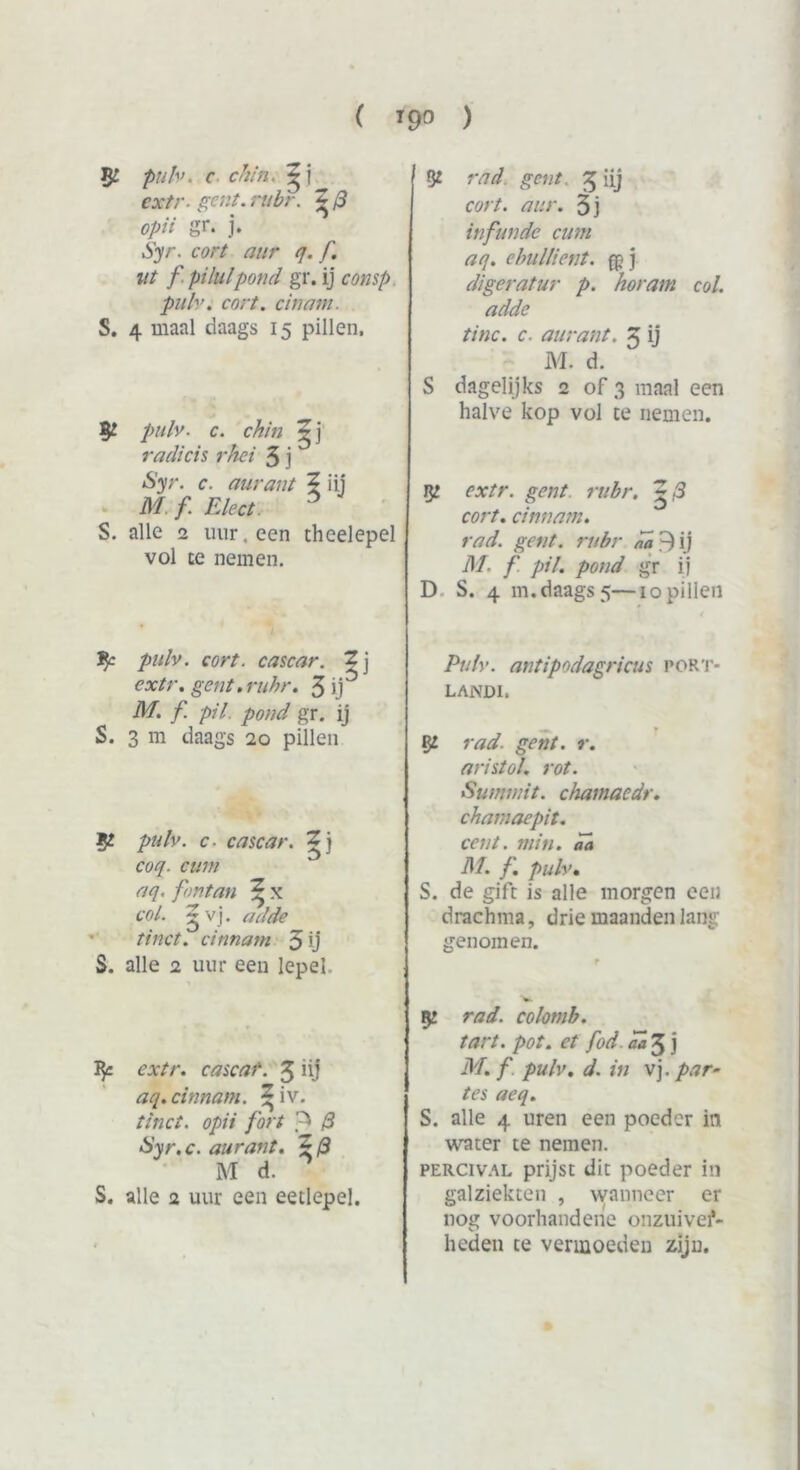 ( 190 )
℞ pulv. c. chin. ℥j
extr. gent. rubr. ℥β
opii gr. j.
Syr. cort aur q. f.
ut f. pilul pond gr. ij consp.
pulv. cort. cinam.
S. 4 maal daags 15 pillen.
℞ pulv. c. chin ℥j
radicis rhei ʒj
Syr. c. aurant ℥iij
M. f. Elect.
S. alle 2 uur, een theelepel
vol te nemen.
℞ pulv. cort. cascar. ℥j
extr. gent. rubr. ʒij
M. f. pil. pond gr. ij
S. 3 m daags 20 pillen
℞ pulv. c. cascar. ℥j
coq. cum
aq. fontan ℥x
col. ℥vj. adde
tinct. cinnam ʒij
S. alle 2 uur een lepel.
℞ extr. cascar. ʒiij
aq. cinnam. ℥iv.
tinct. opii fort ℈β
Syr. c. aurant. ℥β
M d.
S. alle 2 uur een eetlepel.
℞ rad. gent. ʒiij
cort. aur. ʒj
infunde cum
aq. ebullient. ℔j
digeratur p. horam col.
adde
tinc. c. aurant. ʒij
M. d.
S dagelijks 2 of 3 maal een
halve kop vol te nemen.
℞ extr. gent. rubr. ℥β
cort. cinnam.
rad. gent. rubr āā ℈ij
M. f. pil. pond gr ij
D. S. 4 m. daags 5—10 pillen
Pulv. antipodagricus PORT-
LANDI.
℞ rad. gent. r.
aristol. rot.
Summit. chamaedr.
chamaepit.
cent. min. āā
M. f. pulv.
S. de gift is alle morgen een
drachma, drie maanden lang
genomen.
℞ rad. colomb.
tart. pot. et sod. āā ʒj
M. f. pulv. d. in vj. par-
tes aeq.
S. alle 4 uren een poeder in
water te nemen.
PERCIVAL prijst dit poeder in
galziekten , wanneer er
nog voorhandene onzuiver-
heden te vermoeden zijn.